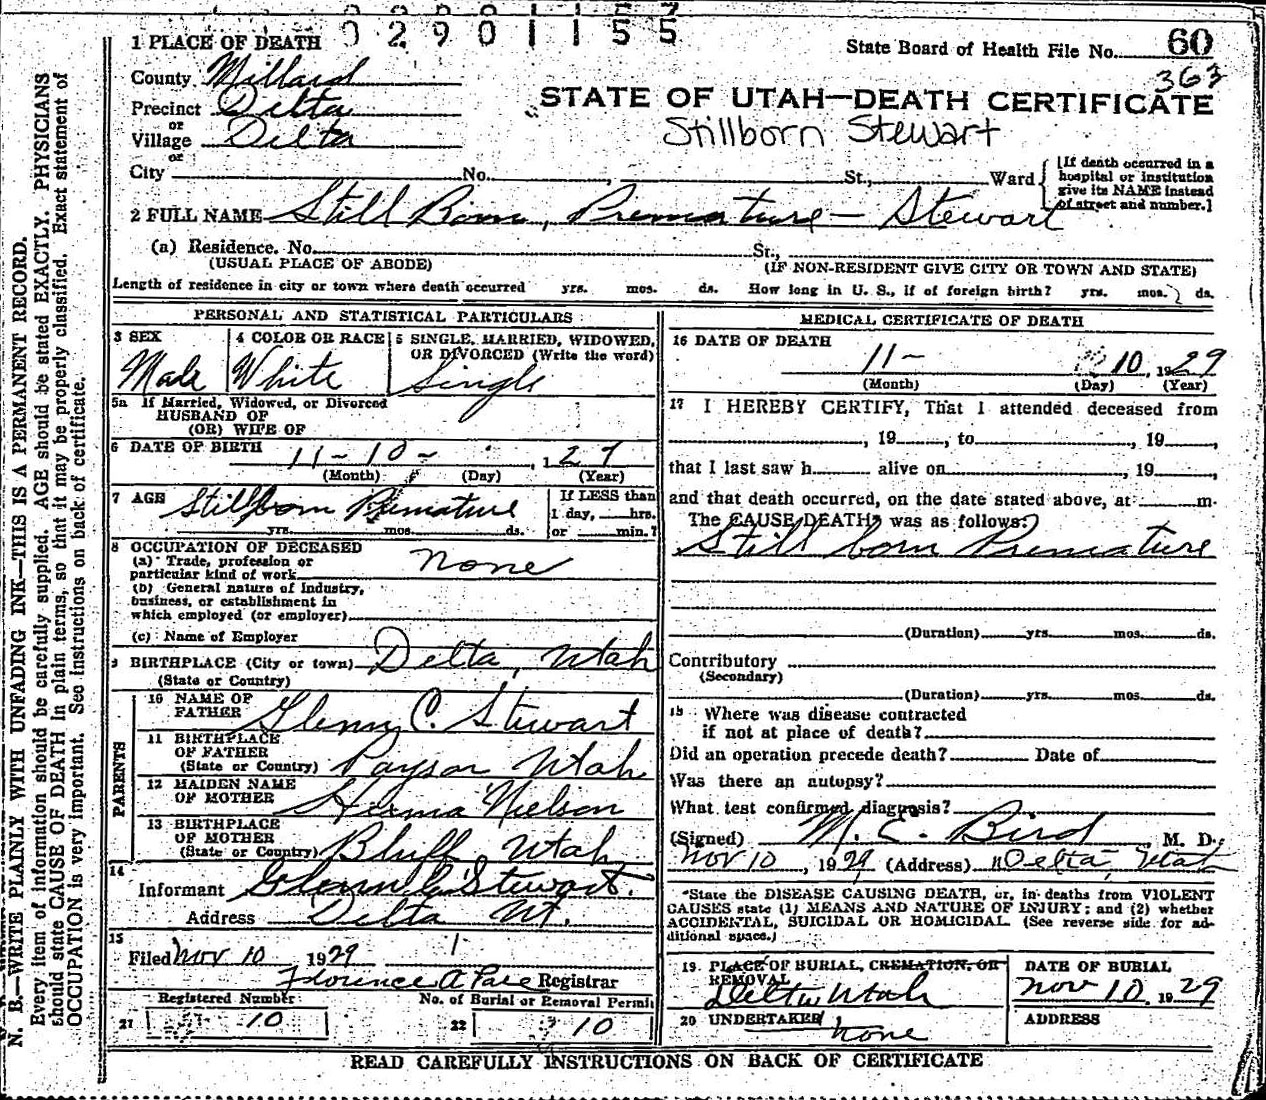 02901155
1 PLACE OF DEATH
State Board of Health File No. 60
363
County Millard
Precinct Delta
or
Village Delta
or
STATE OF UTAH—DEATH CERTIFICATE
Stillborn Stewart
City No. , St., Ward
[If death occurred in a
hospital or institution
give its NAME instead
of street and number.]
2 FULL NAME Still Born, Premature — Stewart
(a) Residence. No. St.,
(USUAL PLACE OF ABODE) (IF NON-RESIDENT GIVE CITY OR TOWN AND STATE)
Length of residence in city or town where death occurred yrs. mos. ds. How long in U. S., if of foreign birth? yrs. mos. ds.
PERSONAL AND STATISTICAL PARTICULARS
3 SEX 4 COLOR OR RACE 5 SINGLE, MARRIED, WIDOWED,
OR DIVORCED (Write the word)
Male White Single
5a If Married, Widowed, or Divorced
HUSBAND OF
(OR) WIFE OF
6 DATE OF BIRTH 11 - 10 - , 1 29
(Month) (Day) (Year)
7 AGE Stillborn Premature
yrs. mos. ds.
If LESS than
1 day, hrs.
or min.?
8 OCCUPATION OF DECEASED
(a) Trade, profession or
particular kind of work none
(b) General nature of industry,
business, or establishment in
which employed (or employer)
(c) Name of Employer
9 BIRTHPLACE (City or town) Delta, Utah
(State or Country)
PARENTS
10 NAME OF
FATHER Glenn C. Stewart
11 BIRTHPLACE
OF FATHER
(State or Country) Payson Utah
12 MAIDEN NAME
OF MOTHER Nielson
13 BIRTHPLACE
OF MOTHER
(State or Country) Bluff, Utah
14
Informant Glenn C. Stewart.
Address Delta Ut.
15
Filed Nov 10 1929 1
Florence A Pace Registrar
Registered Number No. of Burial or Removal Permit
21 10 22 10
MEDICAL CERTIFICATE OF DEATH
16 DATE OF DEATH
11 - 10, 1929
(Month) (Day) (Year)
17 I HEREBY CERTIFY, That I attended deceased from
, 19 , to , 19 ,
that I last saw h alive on , 19 ,
and that death occurred, on the date stated above, at m.
The CAUSE DEATH* was as follows:
Still born Premature
(Duration) yrs. mos. ds.
Contributory
(Secondary)
(Duration) yrs. mos. ds.
18 Where was disease contracted
if not at place of death?
Did an operation precede death? Date of
Was there an autopsy?
What test confirmed diagnosis?
(Signed) M. E. Bird, M. D.
Nov 10, 1929 (Address) Delta, Utah
*State the DISEASE CAUSING DEATH, or, in deaths from VIOLENT
CAUSES state (1) MEANS AND NATURE OF INJURY; and (2) whether
ACCIDENTAL, SUICIDAL OR HOMICIDAL. (See reverse side for ad-
ditional space.)
19 PLACE OF BURIAL, CREMATION, OR
REMOVAL
Delta Utah
DATE OF BURIAL
Nov 10 1929
20 UNDERTAKER
none
ADDRESS
READ CAREFULLY INSTRUCTIONS ON BACK OF CERTIFICATE
N. B.—WRITE PLAINLY WITH UNFADING INK—THIS IS A PERMANENT RECORD.
Every item of information should be carefully supplied. AGE should be stated EXACTLY. PHYSICIANS
should state CAUSE OF DEATH in plain terms, so that it may be properly classified. Exact statement of
OCCUPATION is very important. See instructions on back of certificate.